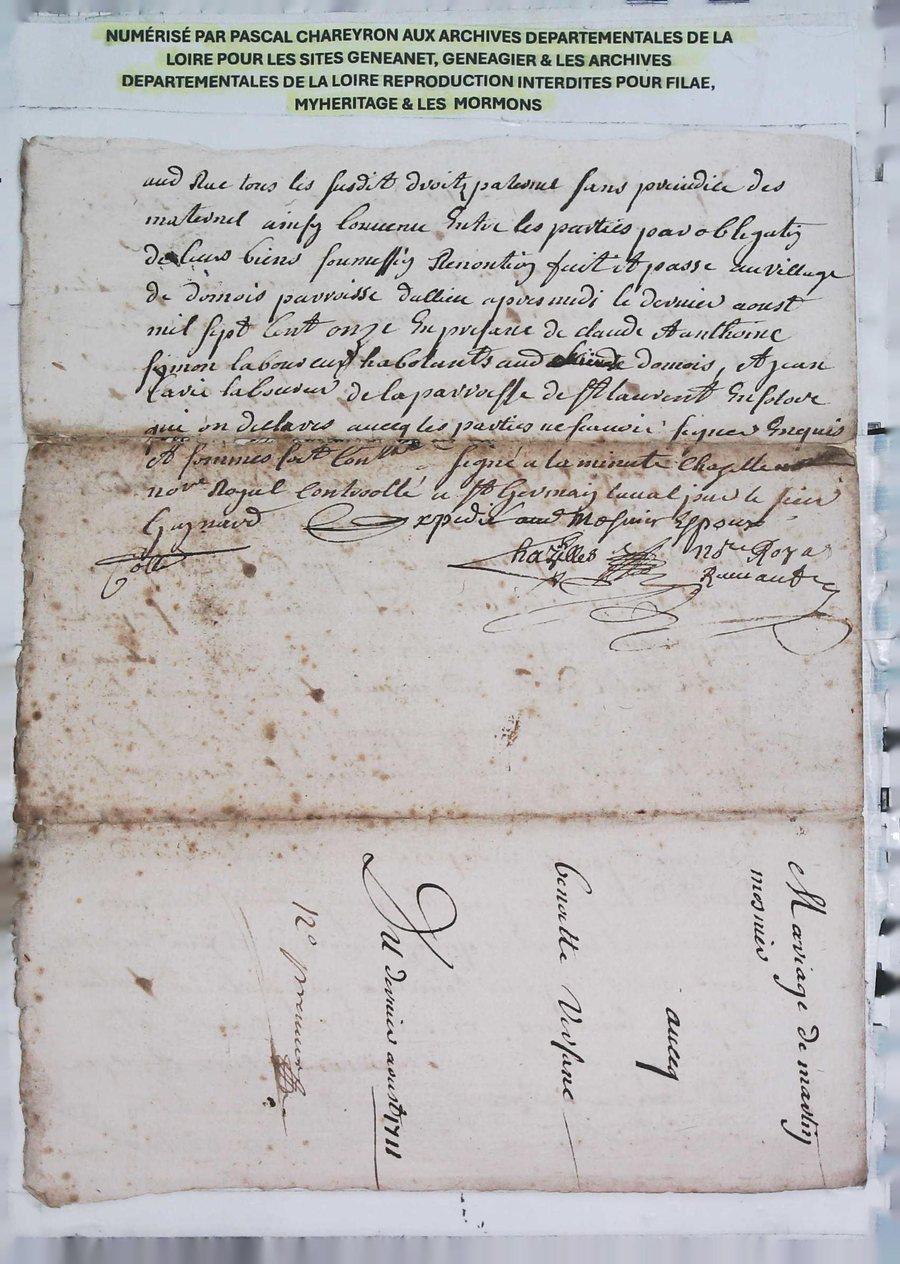 NUMÉRISÉ PAR PASCAL CHAREYRON AUX ARCHIVES DEPARTEMENTALES DE LA
LOIRE POUR LES SITES GENEANET, GENEAGIER & LES ARCHIVES
DEPARTEMENTALES DE LA LOIRE REPRODUCTION INTERDITES POUR FILAE,
MYHERITAGE & LES MORMONS
aud Rac tous les susdit droitz paternel sans preiudice des
maternel ainsy convenu Entre les parties par obligation
de leurs biens soumission Renontion fait et passe au village
de domois parroisse dallieu apres midi le dernier aoust
mil sept cent onze En presance de claude et anthoine
symon laboureurs habitants aud domois, et jean
laboureur de la parroisse de st laurent
qui on declares avecq les parties ne scavoir signer Enquis
et sommes signé a la minute Chazelles
nore Royal Controllé a st Germain laval par le sieur
Expedié aud mosnier Espoux
Chazelles Nore Royal
Mariage de martin
mosnier
avecq
benoitte Versane
Du dernier aoust 1711